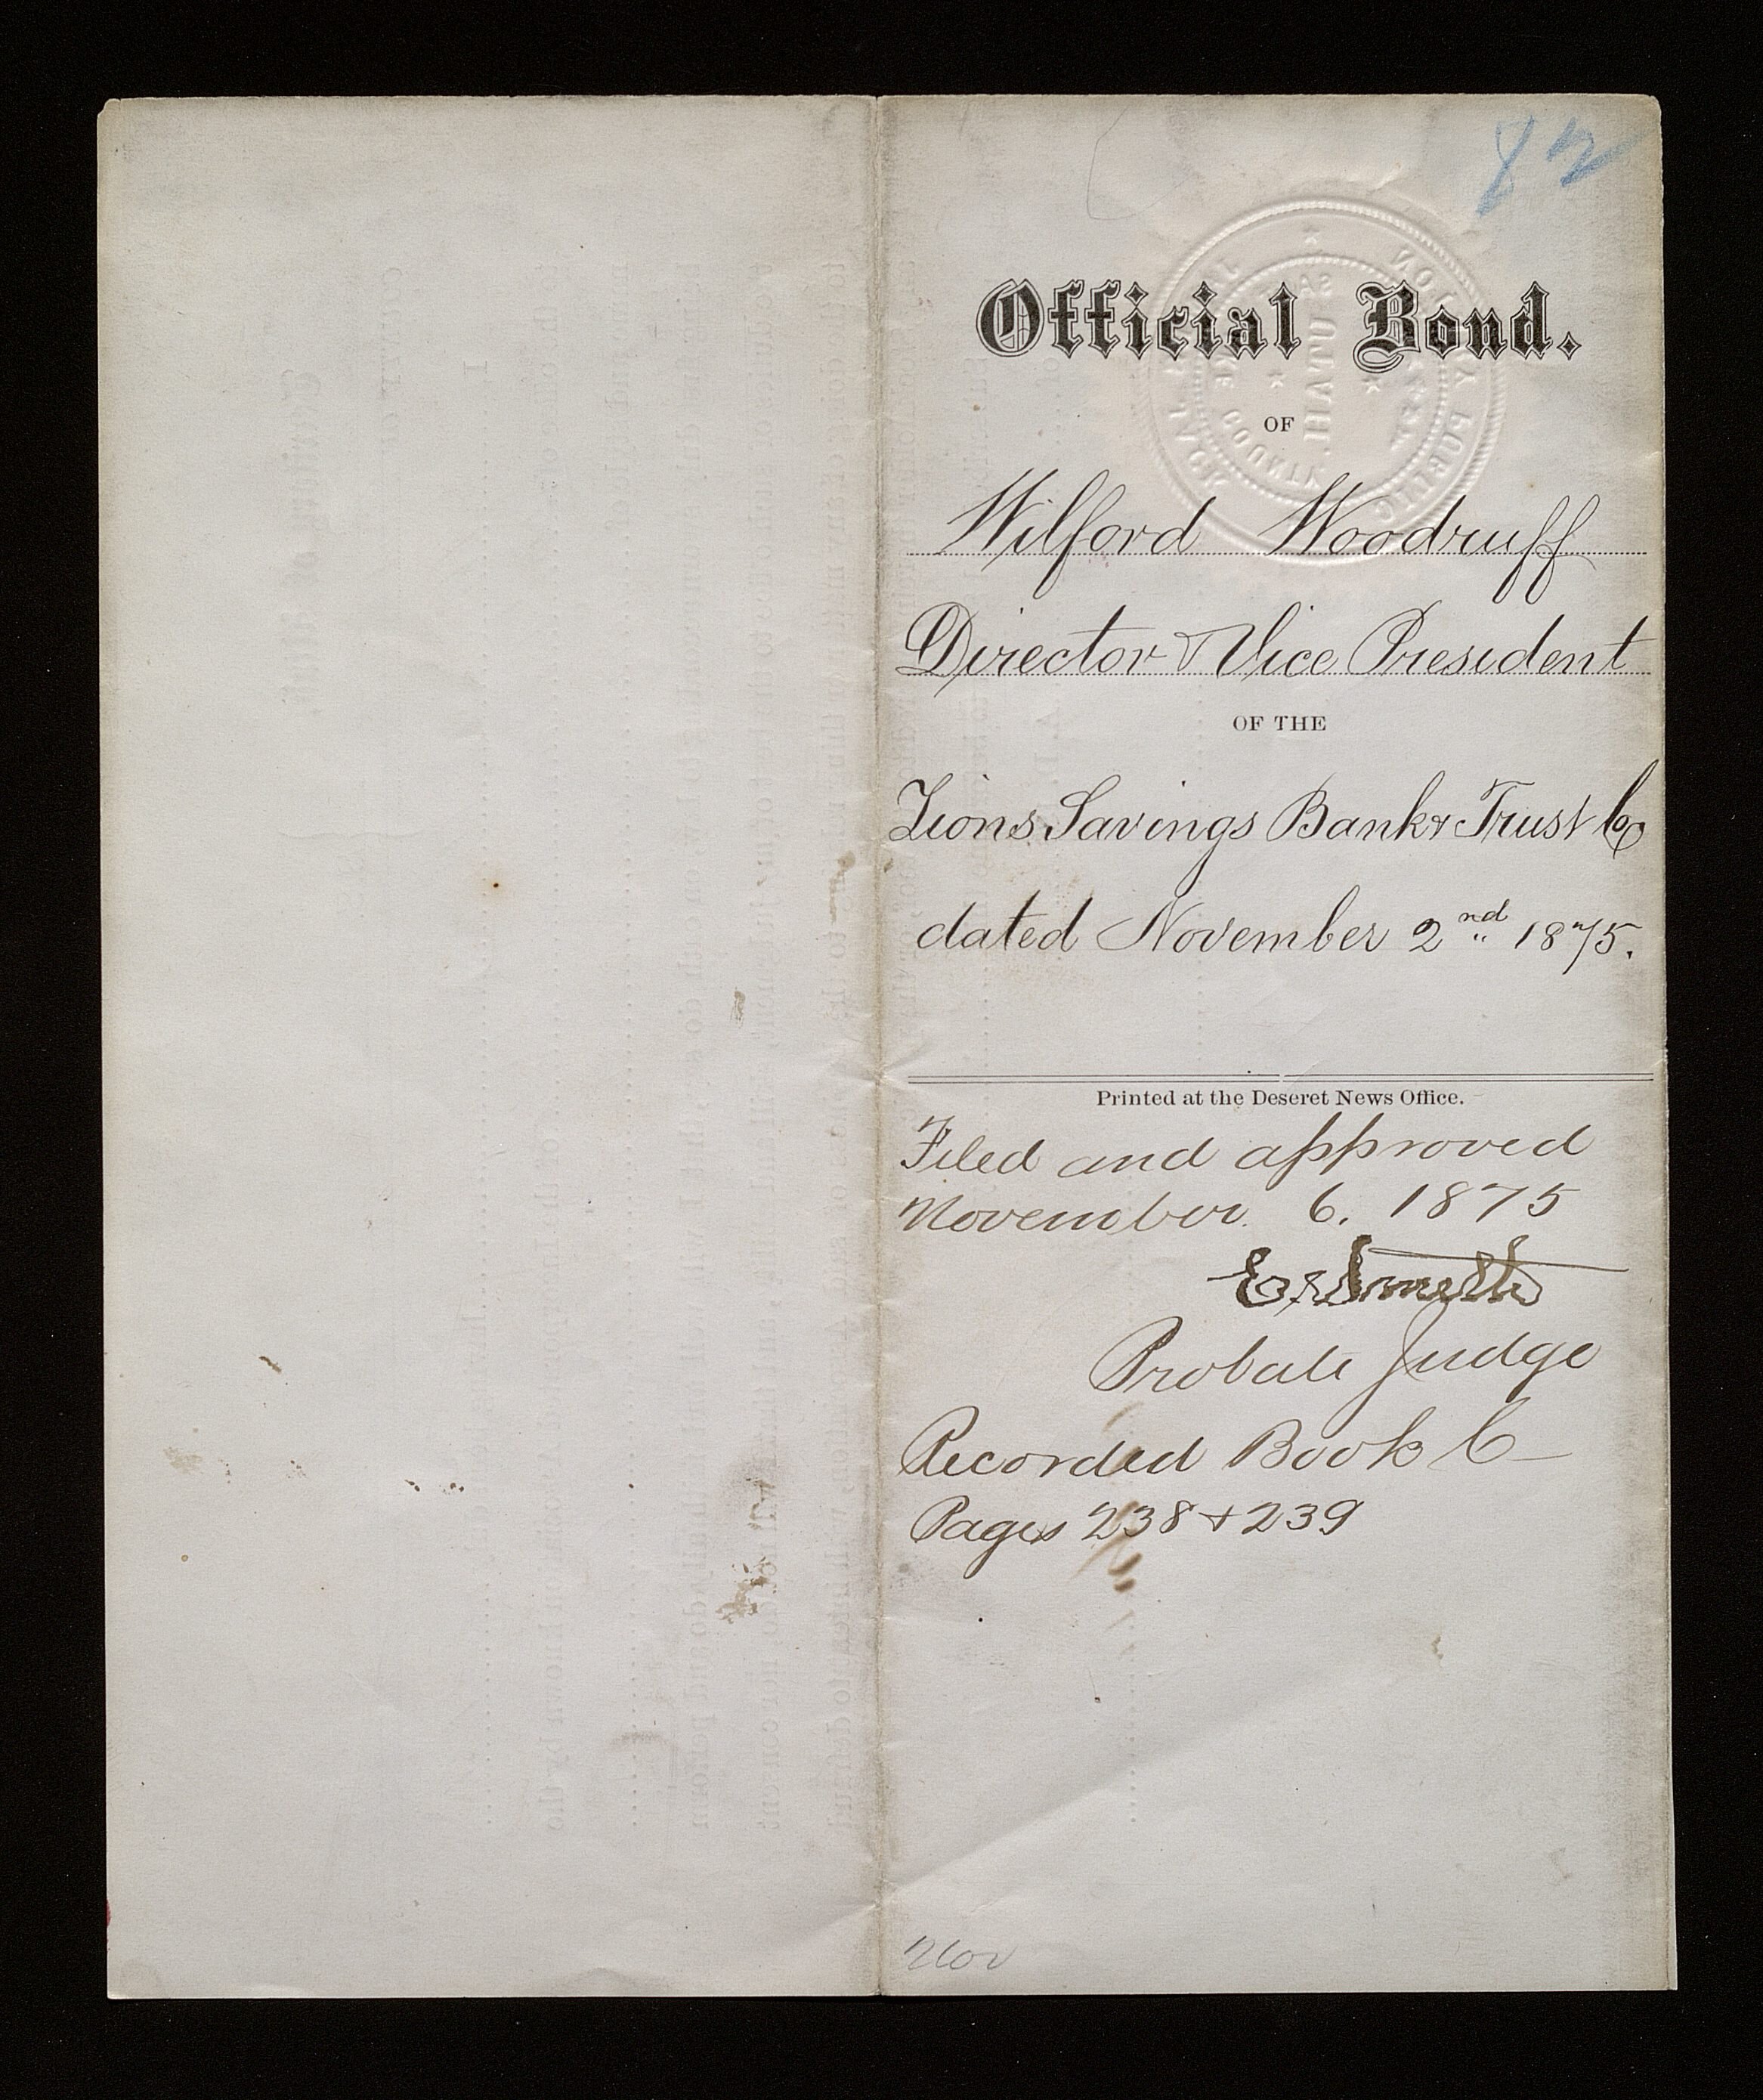 82
Official Bond.
OF
Wilford Woodruff
Director & Vice President
OF THE
Zions Savings Bank & Trust Co
dated November 2nd 1875.
Printed at the Deseret News Office.
Filed and approved
November 6. 1875
E Smith
Probate Judge
Recorded Book C
Pages 238 & 239
Nov